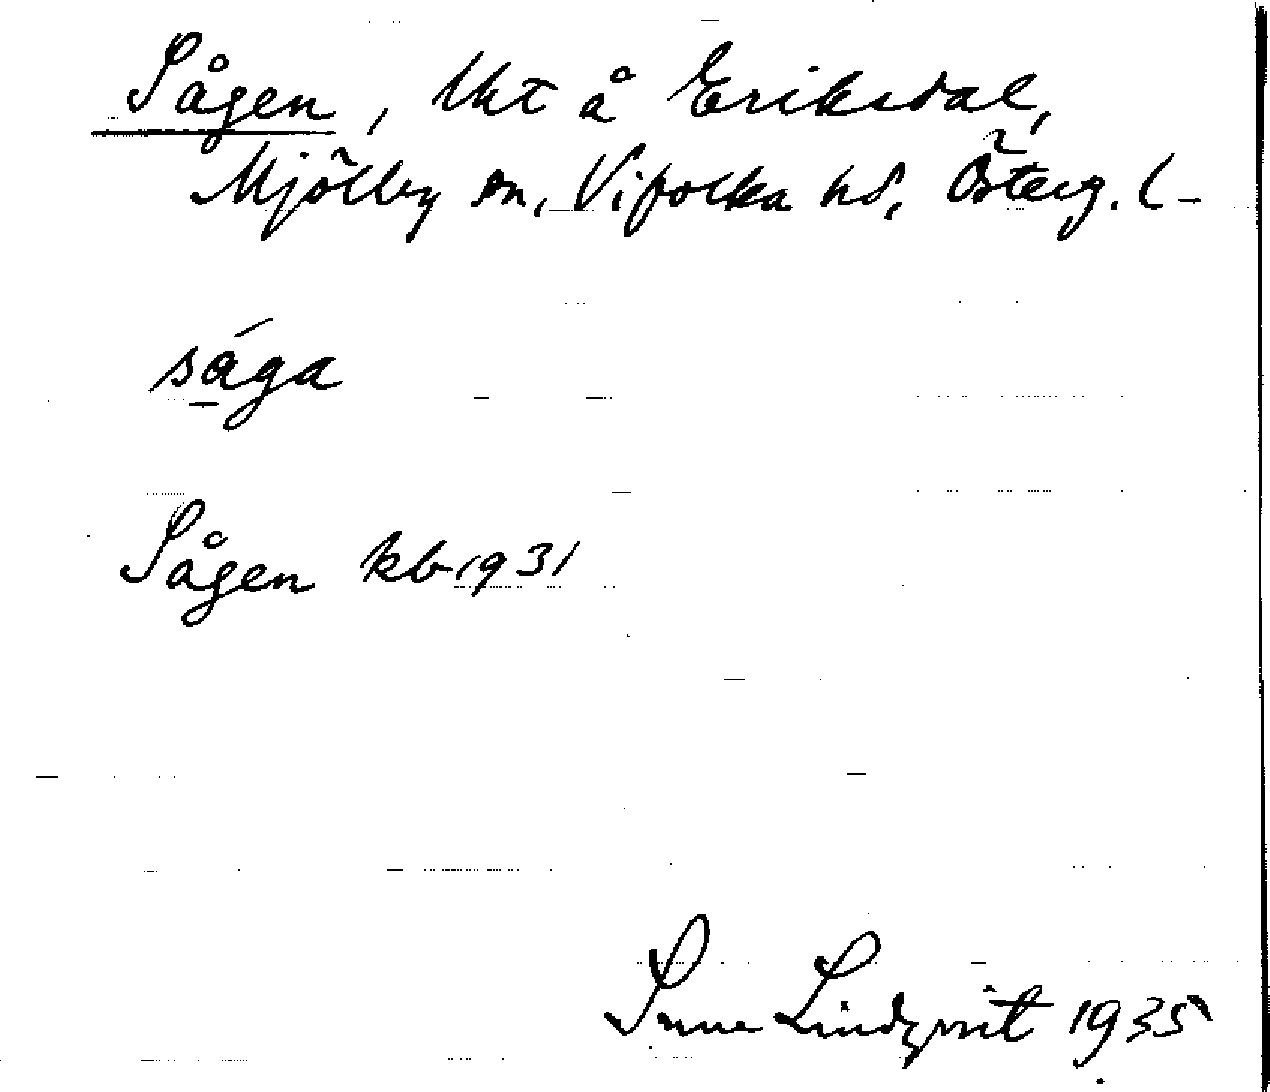 Sågen, lht å Eriksdal,
Mjölby sn, Vifolka hd, Österg. l-
sǻga
Sågen kb 1931
Sune Lindqvist 1935